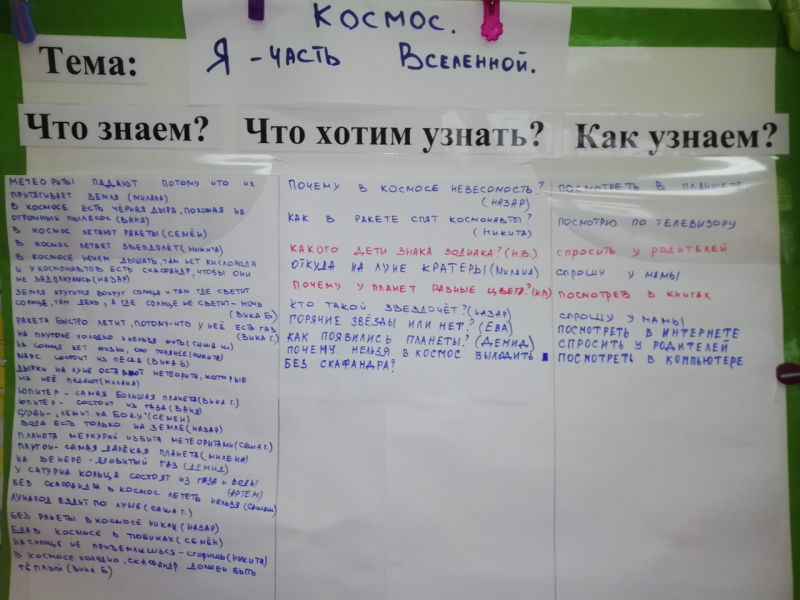 Космос.
Тема:
Я - часть Вселенной.
Что знаем?
Что хотим узнать?
Как узнаем?
МЕТЕОРИТЫ ПАДАЮТ ПОТОМУ ЧТО ИХ
ПРИТЯГИВАЕТ ЗЕМЛЯ (МИЛАНА)
В КОСМОСЕ ЕСТЬ ЧЁРНАЯ ДЫРА, ПОХОЖАЯ НА
ОГРОМНЫЙ ПЫЛЕСОС (ВАНЯ)
В КОСМОС ЛЕТАЮТ РАКЕТЫ (СЕМЁН)
В КОСМОС ЛЕТАЕТ ЗВЕЗДОЛЁТ (НИКИТА)
В КОСМОСЕ НЕЧЕМ ДЫШАТЬ, ТАМ НЕТ КИСЛОРОДА
И У КОСМОНАВТОВ ЕСТЬ СКАФАНДР, ЧТОБЫ ОНИ
НЕ ЗАДОХНУЛИСЬ (НАЗАР)
ЗЕМЛЯ КРУТИТСЯ ВОКРУГ СОЛНЦА И ТАМ ГДЕ СВЕТИТ
СОЛНЦЕ, ТАМ ДЕНЬ, А ГДЕ СОЛНЦЕ НЕ СВЕТИТ - НОЧЬ
(ВИКА Б)
РАКЕТА БЫСТРО ЛЕТИТ, ПОТОМУ-ЧТО У НЕЁ ЕСТЬ ГАЗ
(ВИКА Г.)
НА ПЛУТОНЕ ХОЛОДНО И НЕЛЬЗЯ ЖИТЬ (САША Ш)
НА СОЛНЦЕ НЕТ ЖИЗНИ, ОНО ГОРЯЧЕЕ (НИКИТА)
МАРС СОСТОИТ ИЗ ПЕСКА (ВИКА Б)
ДЫРКИ НА ЛУНЕ ОСТАВЛЯЮТ МЕТЕОРИТЫ, КОТОРЫЕ
НА НЕЁ ПАДАЮТ (МИЛАНА)
ЮПИТЕР - САМАЯ БОЛЬШАЯ ПЛАНЕТА (ВИКА Г.)
ЮПИТЕР - СОСТОИТ ИЗ ГАЗА (ВАНЯ)
УРАН - "ЛЕЖИТ НА БОКУ" (СЕМЁН)
ВОДА ЕСТЬ ТОЛЬКО НА ЗЕМЛЕ (НАЗАР)
ПЛАНЕТА МЕРКУРИЙ ИЗБИТА МЕТЕОРИТАМИ (САША Г.)
ПЛУТОН - САМАЯ ДАЛЁКАЯ ПЛАНЕТА (МИЛЕНА)
НА ВЕНЕРЕ - ЯДОВИТЫЙ ГАЗ (ДЕМИД)
У САТУРНА КОЛЬЦА СОСТОЯТ ИЗ ГАЗА И ВОДЫ
(АРТЁМ)
БЕЗ СКАФАНДРА В КОСМОС ЛЕТЕТЬ НЕЛЬЗЯ
ЛУНАХОД ЕЗДИТ ПО ЛУНЕ (САША Г.)
БЕЗ РАКЕТЫ В КОСМОСЕ НИКАК (НАЗАР)
ЕДА В КОСМОСЕ В ТЮБИКАХ (СЕМЁН)
НА СОЛНЦЕ НЕ ПРИЗЕМЛИШЬСЯ - СГОРИШЬ (НИКИТА)
В КОСМОСЕ ХОЛОДНО, СКАФАНДР ДОЛЖЕН БЫТЬ
ТЁПЛЫЙ (ВИКА Б)
ПОЧЕМУ В КОСМОСЕ НЕВЕСОМОСТЬ?
(НАЗАР)
КАК В РАКЕТЕ СПЯТ КОСМОНАВТЫ?
(НИКИТА)
КАКОГО ДЕТИ ЗНАКА ЗОДИАКА? (Н.В.)
ОТКУДА НА ЛУНЕ КРАТЕРЫ (МИЛАНА)
ПОЧЕМУ У ПЛАНЕТ РАЗНЫЕ ЦВЕТА?
КТО ТАКОЙ ЗВЕЗДОЧЁТ? (НАЗАР)
ГОРЯЧИЕ ЗВЁЗДЫ ИЛИ НЕТ? (ЕВА)
КАК ПОЯВИЛИСЬ ПЛАНЕТЫ? (ДЕМИД)
ПОЧЕМУ НЕЛЬЗЯ В КОСМОС ВЫХОДИТЬ
БЕЗ СКАФАНДРА?
ПОСМОТРЕТЬ В ПЛАНШЕТЕ
ПОСМОТРЮ ПО ТЕЛЕВИЗОРУ
СПРОСИТЬ У РОДИТЕЛЕЙ
СПРОШУ У МАМЫ
ПОСМОТРЕТЬ В КНИГАХ
СПРОШУ У МАМЫ
ПОСМОТРЕТЬ В ИНТЕРНЕТЕ
СПРОСИТЬ У РОДИТЕЛЕЙ
ПОСМОТРЕТЬ В КОМПЬЮТЕРЕ